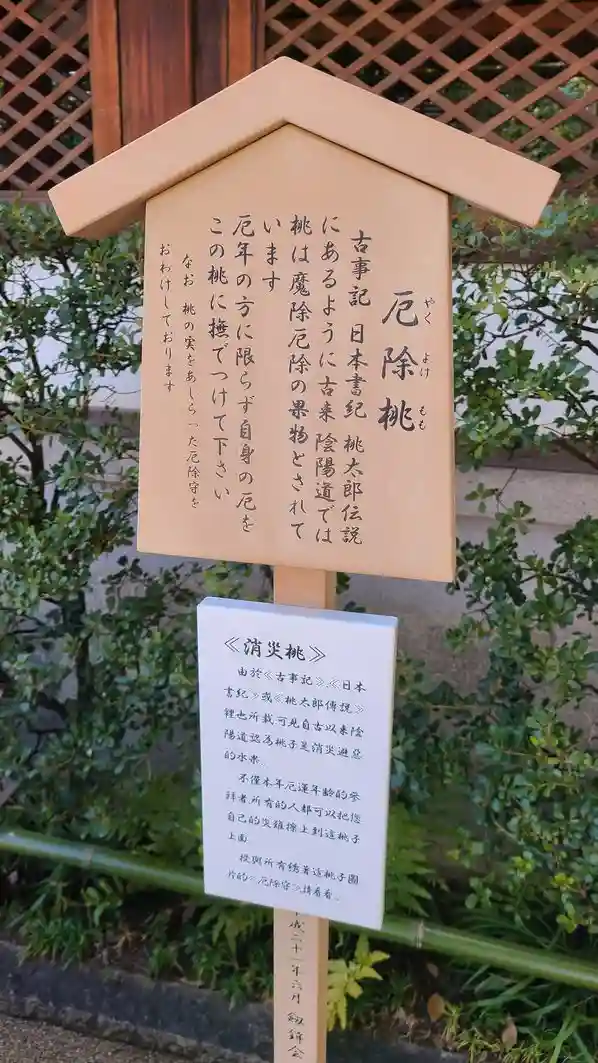 厄除桃
やく よけ もも
古事記 日本書紀 桃太郎伝説
にあるように古来 陰陽道では
桃は魔除厄除の果物とされて
います
厄年の方に限らず自身の厄を
この桃に撫でつけて下さい
なお 桃の実をあしらった厄除守を
おわけしております
《消災桃》
由於《古事記》、《日本
書紀》或《桃太郎傳說》
裡也所載,可見自古以來陰
陽道認為桃子是消災避惡
的水果。
不僅本年厄運年齡的參
拜者,所有的人都可以把您
自己的災難擦上到這桃子
上面。
授與所有綉著這桃子圖
片的《厄除守》,請看看。
平成二十一年六月